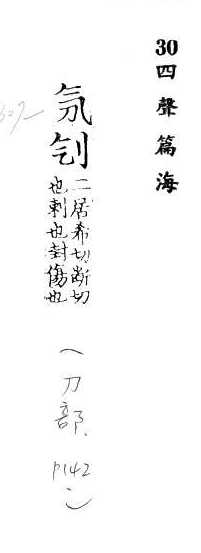 30四聲篇海
刏
二居希切斷切
也刺也封傷也
（刀部、P142）